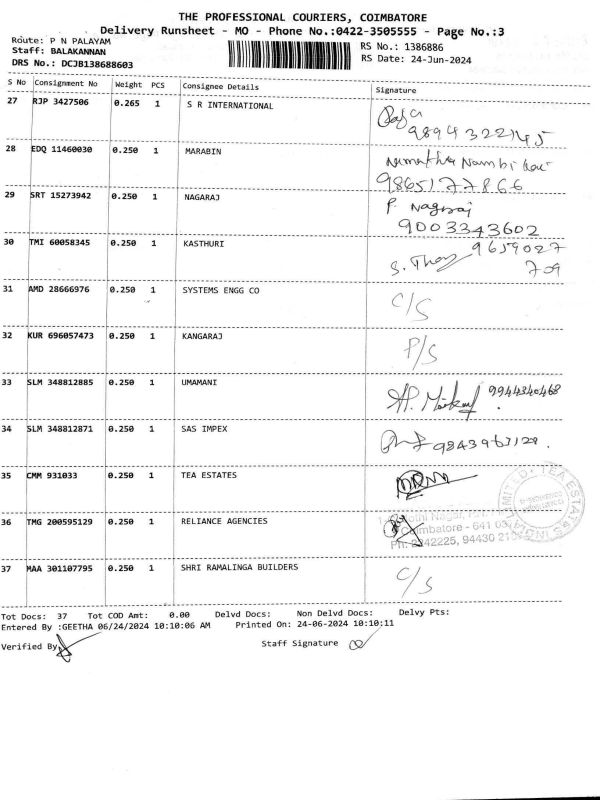 THE PROFESSIONAL COURIERS, COIMBATORE
Delivery Runsheet - MO - Phone No.:0422-3505555 - Page No.:3
Route: P N PALAYAM
Staff: BALAKANNAN
RS No.: 1386886
DRS No.: DCJB138688603
RS Date: 24-Jun-2024
S No Consignment No Weight PCS Consignee Details Signature
27 RJP 3427506 0.265 1 S R INTERNATIONAL
9894322145
28 EDQ 11460030 0.250 1 MARABIN
9865177866
29 SRT 15273942 0.250 1 NAGARAJ P. Nagaraj
9003343602
30 TMI 60058345 0.250 1 KASTHURI 9659027
709
31 AMD 28666976 0.250 1 SYSTEMS ENGG CO C/S
32 KUR 696057473 0.250 1 KANGARAJ P/S
33 SLM 348812885 0.250 1 UMAMANI 9944340468
34 SLM 348812871 0.250 1 SAS IMPEX
35 CMM 931033 0.250 1 TEA ESTATES
36 TMG 200595129 0.250 1 RELIANCE AGENCIES
Coimbatore - 641
37 MAA 301107795 0.250 1 SHRI RAMALINGA BUILDERS C/S
Tot Docs: 37 Tot COD Amt: 0.00 Delvd Docs: Non Delvd Docs: Delvy Pts:
Entered By :GEETHA 06/24/2024 10:10:06 AM Printed On: 24-06-2024 10:10:11
Verified By Staff Signature